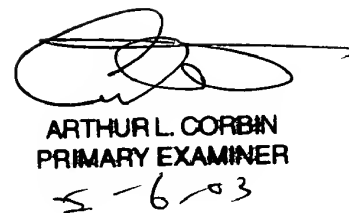 ARTHUR L. CORBIN
PRIMARY EXAMINER
5-6-03